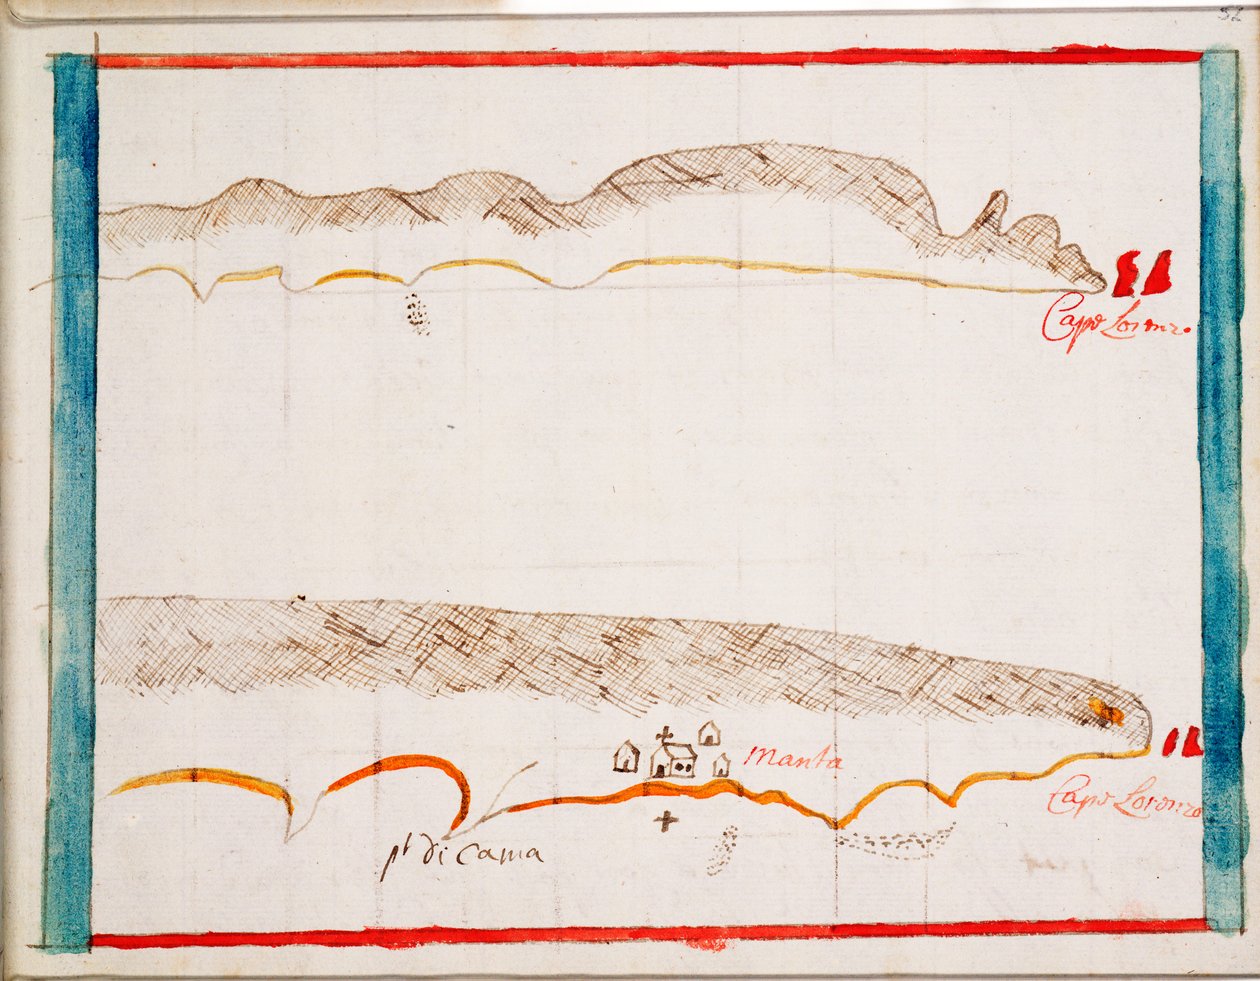 32
Capo Lorenzo
Manta
Capo Lorenzo
pt di Cama